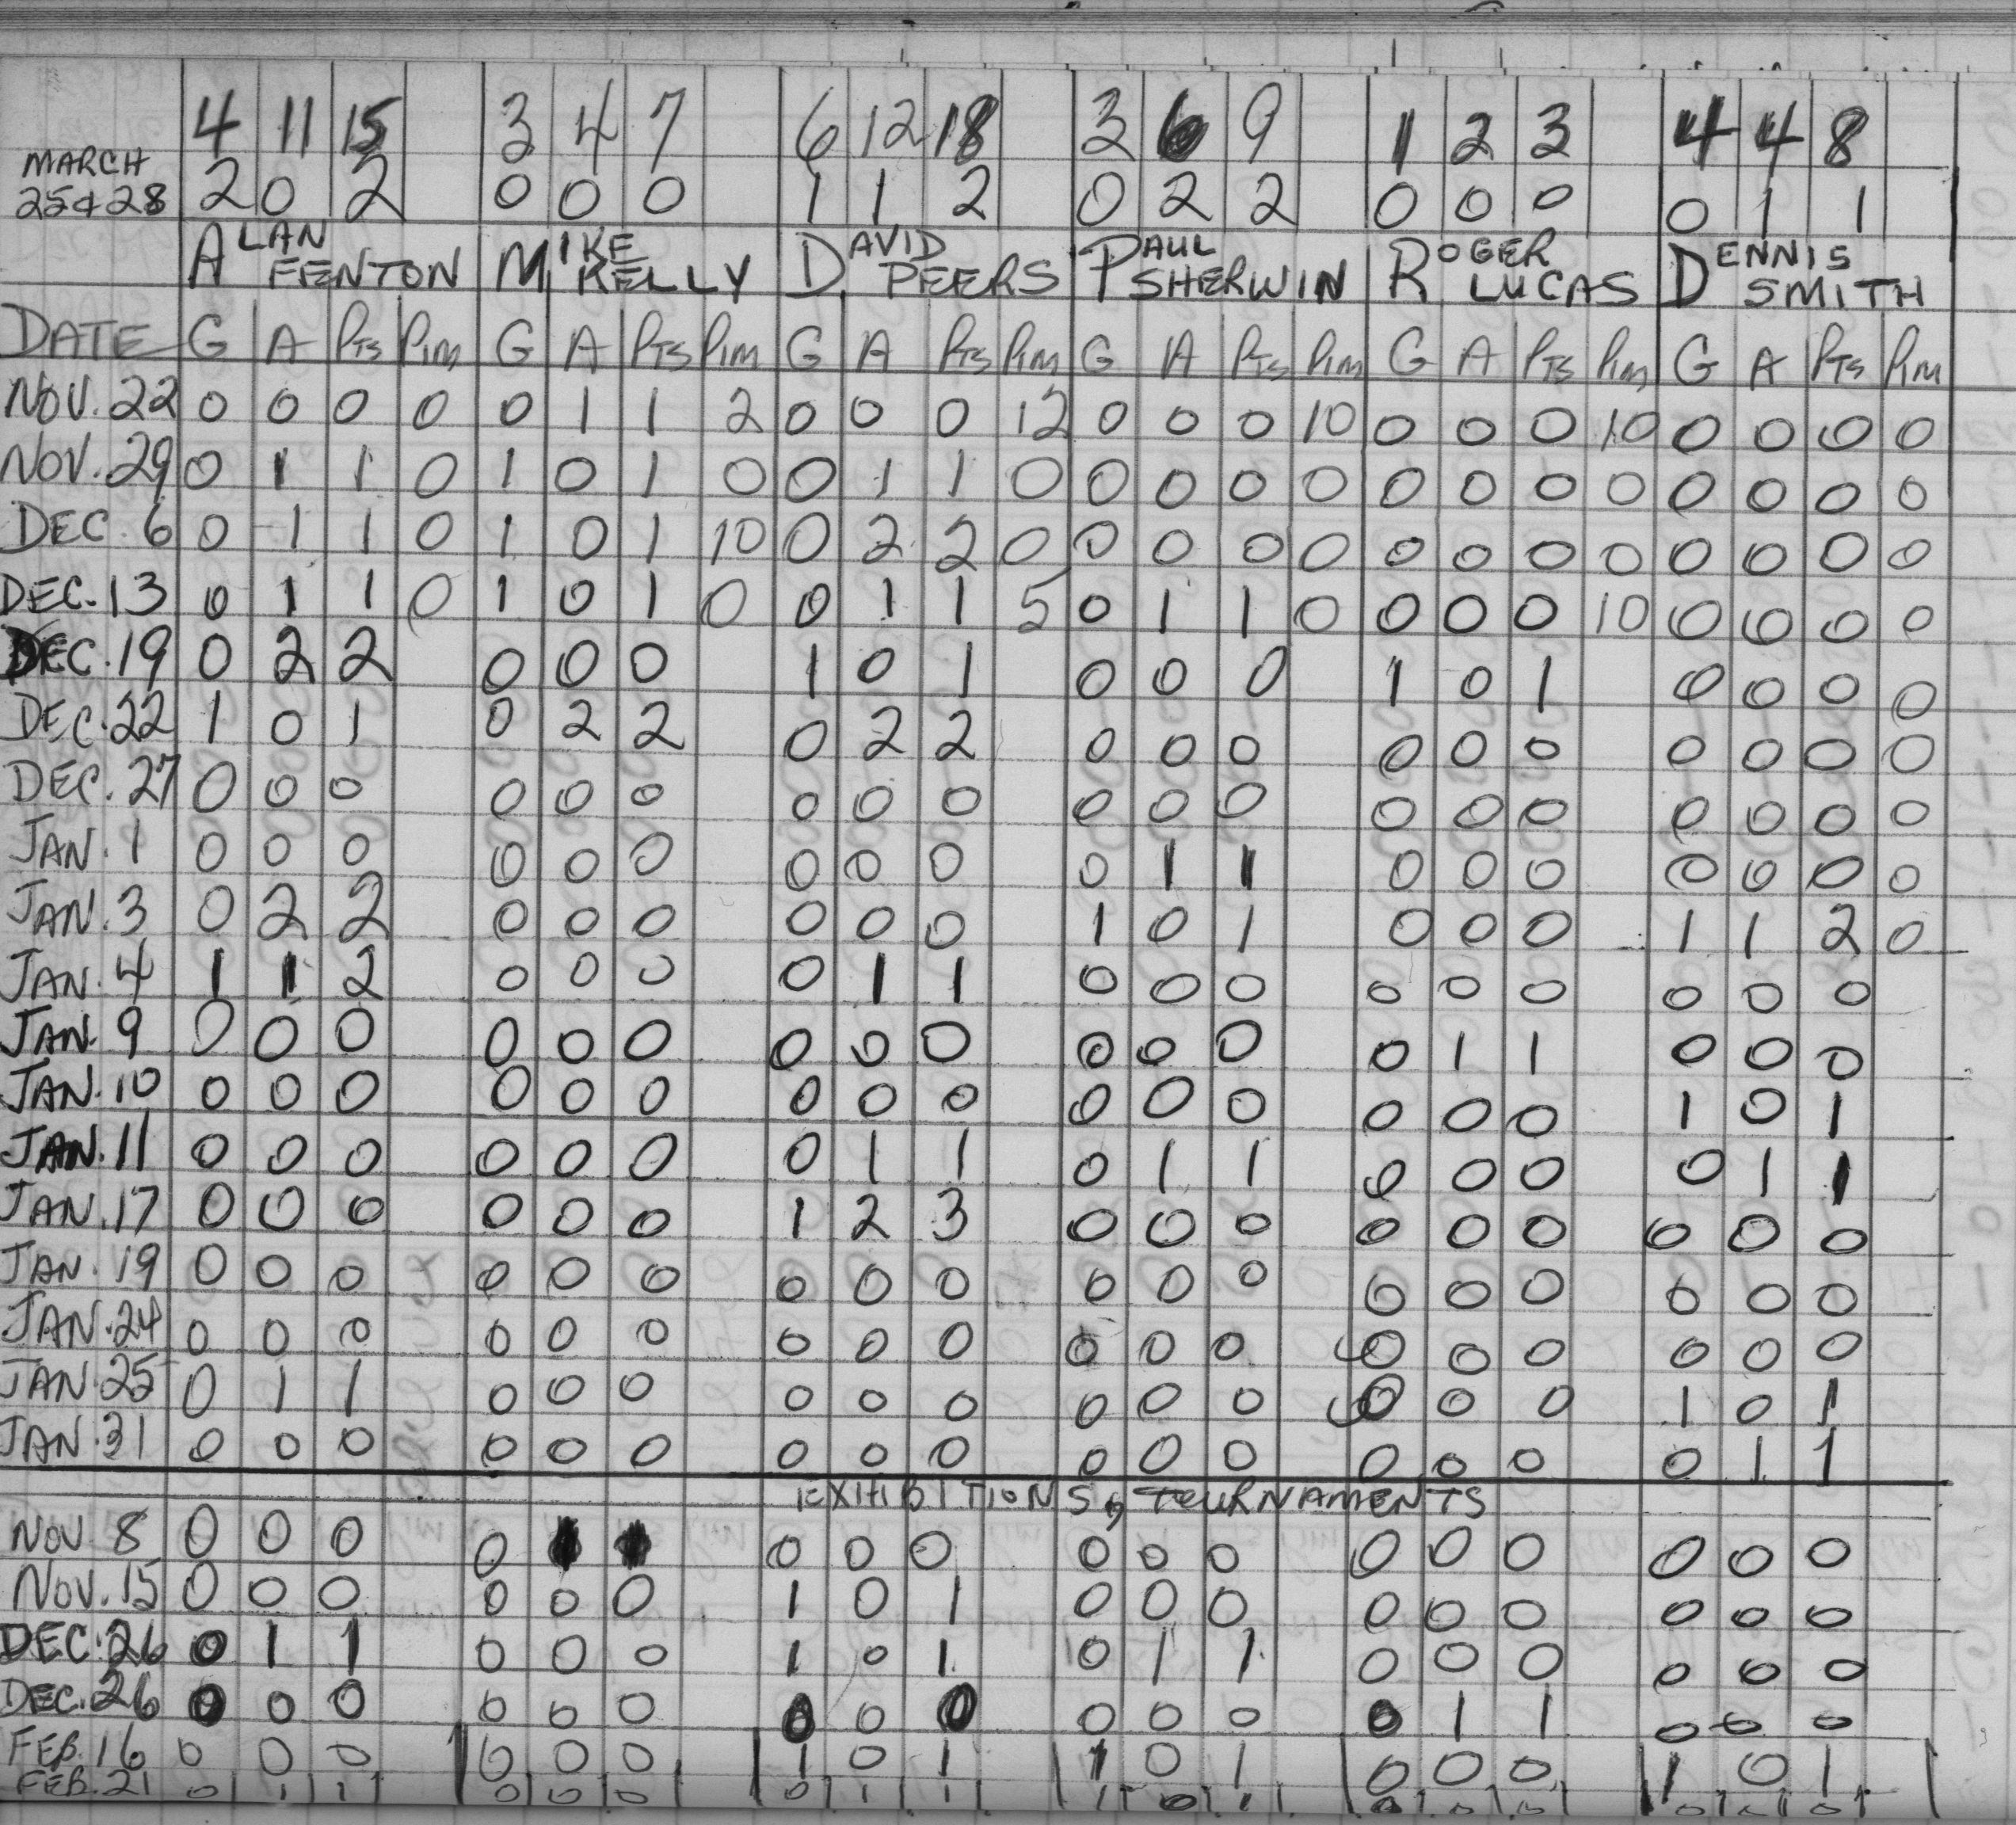 4 11 15 3 4 7 6 12 18 3 6 9 1 2 3 4 4 8
MARCH
25&28 2 0 2 0 0 0 1 1 2 0 2 2 0 0 0 0 1 1
ALAN MIKE DAVID PAUL ROGER DENNIS
FENTON KELLY PEERS SHERWIN LUCAS SMITH
DATE G A PTS PIM G A PTS PIM G A PTS PIM G A PTS PIM G A PTS PIM G A PTS PIM
NOV. 22 0 0 0 0 0 1 1 2 0 0 0 12 0 0 0 10 0 0 0 10 0 0 0 0
NOV. 29 0 1 1 0 1 0 1 0 0 1 1 0 0 0 0 0 0 0 0 0 0 0 0 0
DEC. 6 0 1 1 0 1 0 1 10 0 2 2 0 0 0 0 0 0 0 0 0 0 0 0 0
DEC. 13 0 1 1 0 1 0 1 0 0 1 1 5 0 1 1 0 0 0 0 10 0 0 0 0
DEC. 19 0 2 2 0 0 0 1 0 1 0 0 0 1 0 1 0 0 0 0
DEC. 22 1 0 1 0 2 2 0 2 2 0 0 0 0 0 0 0 0 0 0
DEC. 27 0 0 0 0 0 0 0 0 0 0 0 0 0 0 0 0 0 0 0
JAN. 1 0 0 0 0 0 0 0 0 0 0 1 1 0 0 0 0 0 0 0
JAN. 3 0 2 2 0 0 0 0 0 0 1 0 1 0 0 0 1 1 2 0
JAN. 4 1 1 2 0 0 0 0 1 1 0 0 0 0 0 0 0 0 0
JAN. 9 0 0 0 0 0 0 0 0 0 0 0 0 0 1 1 0 0 0
JAN. 10 0 0 0 0 0 0 0 0 0 0 0 0 0 0 0 1 0 1
JAN. 11 0 0 0 0 0 0 0 1 1 0 1 1 0 0 0 0 1 1
JAN. 17 0 0 0 0 0 0 1 2 3 0 0 0 0 0 0 0 0 0
JAN. 19 0 0 0 0 0 0 0 0 0 0 0 0 0 0 0 0 0 0
JAN. 24 0 0 0 0 0 0 0 0 0 0 0 0 0 0 0 0 0 0
JAN. 25 0 1 1 0 0 0 0 0 0 0 0 0 0 0 0 1 0 1
JAN. 31 0 0 0 0 0 0 0 0 0 0 0 0 0 0 0 0 1 1
EXHIBITIONS, TOURNAMENTS
NOV 8 0 0 0 0 0 0 0 0 0 0 0 0 0 0 0 0
NOV. 15 0 0 0 0 0 0 1 0 1 0 0 0 0 0 0 0 0 0
DEC. 26 0 1 1 0 0 0 1 0 1 0 1 1 0 0 0 0 0 0
DEC. 26 0 0 0 0 0 0 0 0 0 0 0 0 0 1 1 0 0 0
FEB. 16 0 0 0 0 0 0 1 0 1 1 0 1 0 0 0 1 0 1
FEB. 21 0 1 1 0 0 0 0 1 1 1 0 1 0 0 0